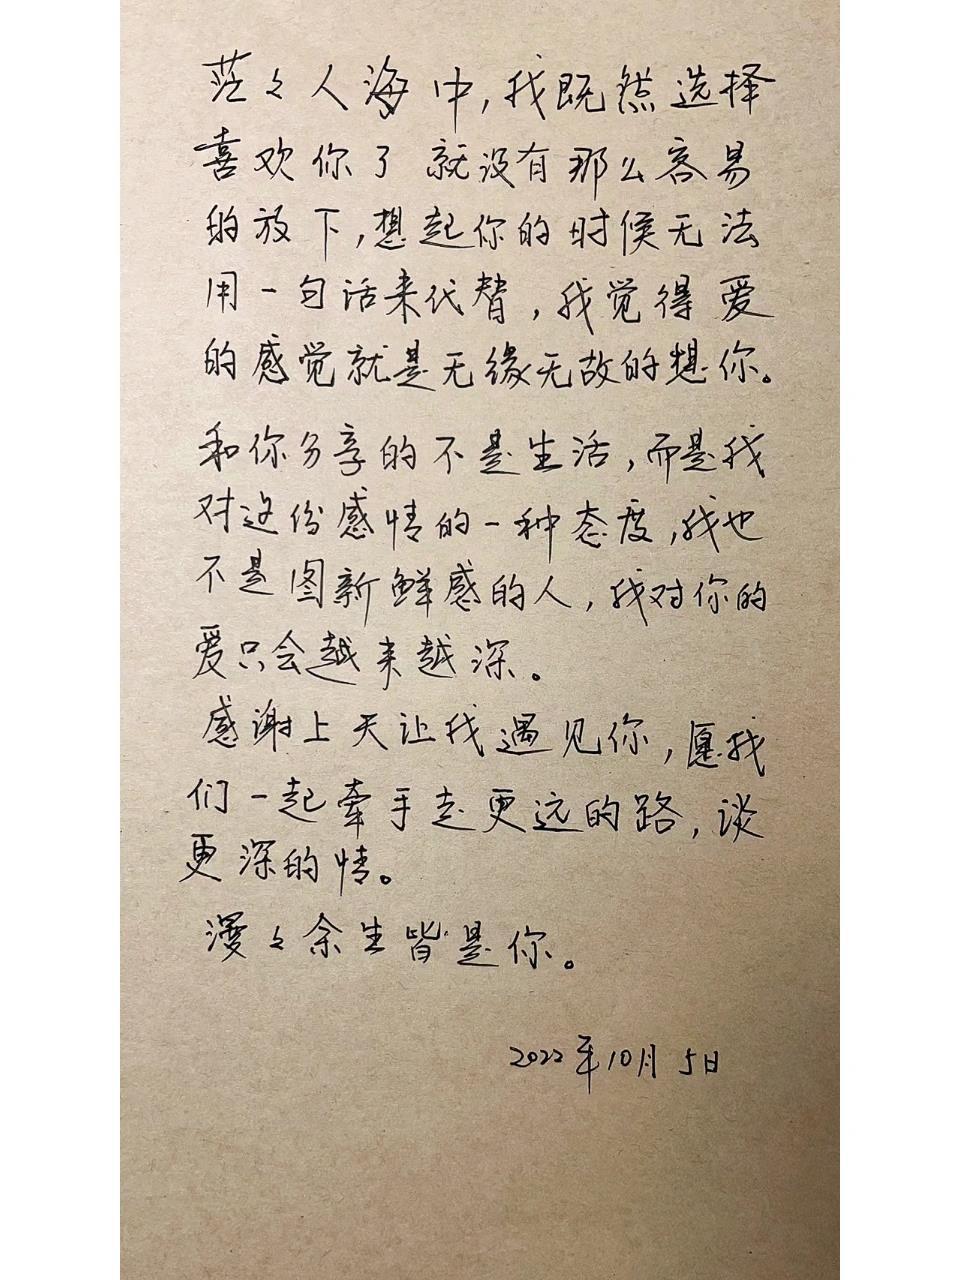 茫々人海中,我既然选择
喜欢你了 就没有那么容易
的放下,想起你的时候无法
用一句话来代替,我觉得爱
的感觉就是无缘无故的想你。
和你分享的不是生活,而是我
对这份感情的一种态度,我也
不是图新鲜感的人,我对你的
爱只会越来越深。
感谢上天让我遇见你,愿我
们一起牵手走更远的路,谈
更深的情。
漫々余生皆是你。
2022年10月5日